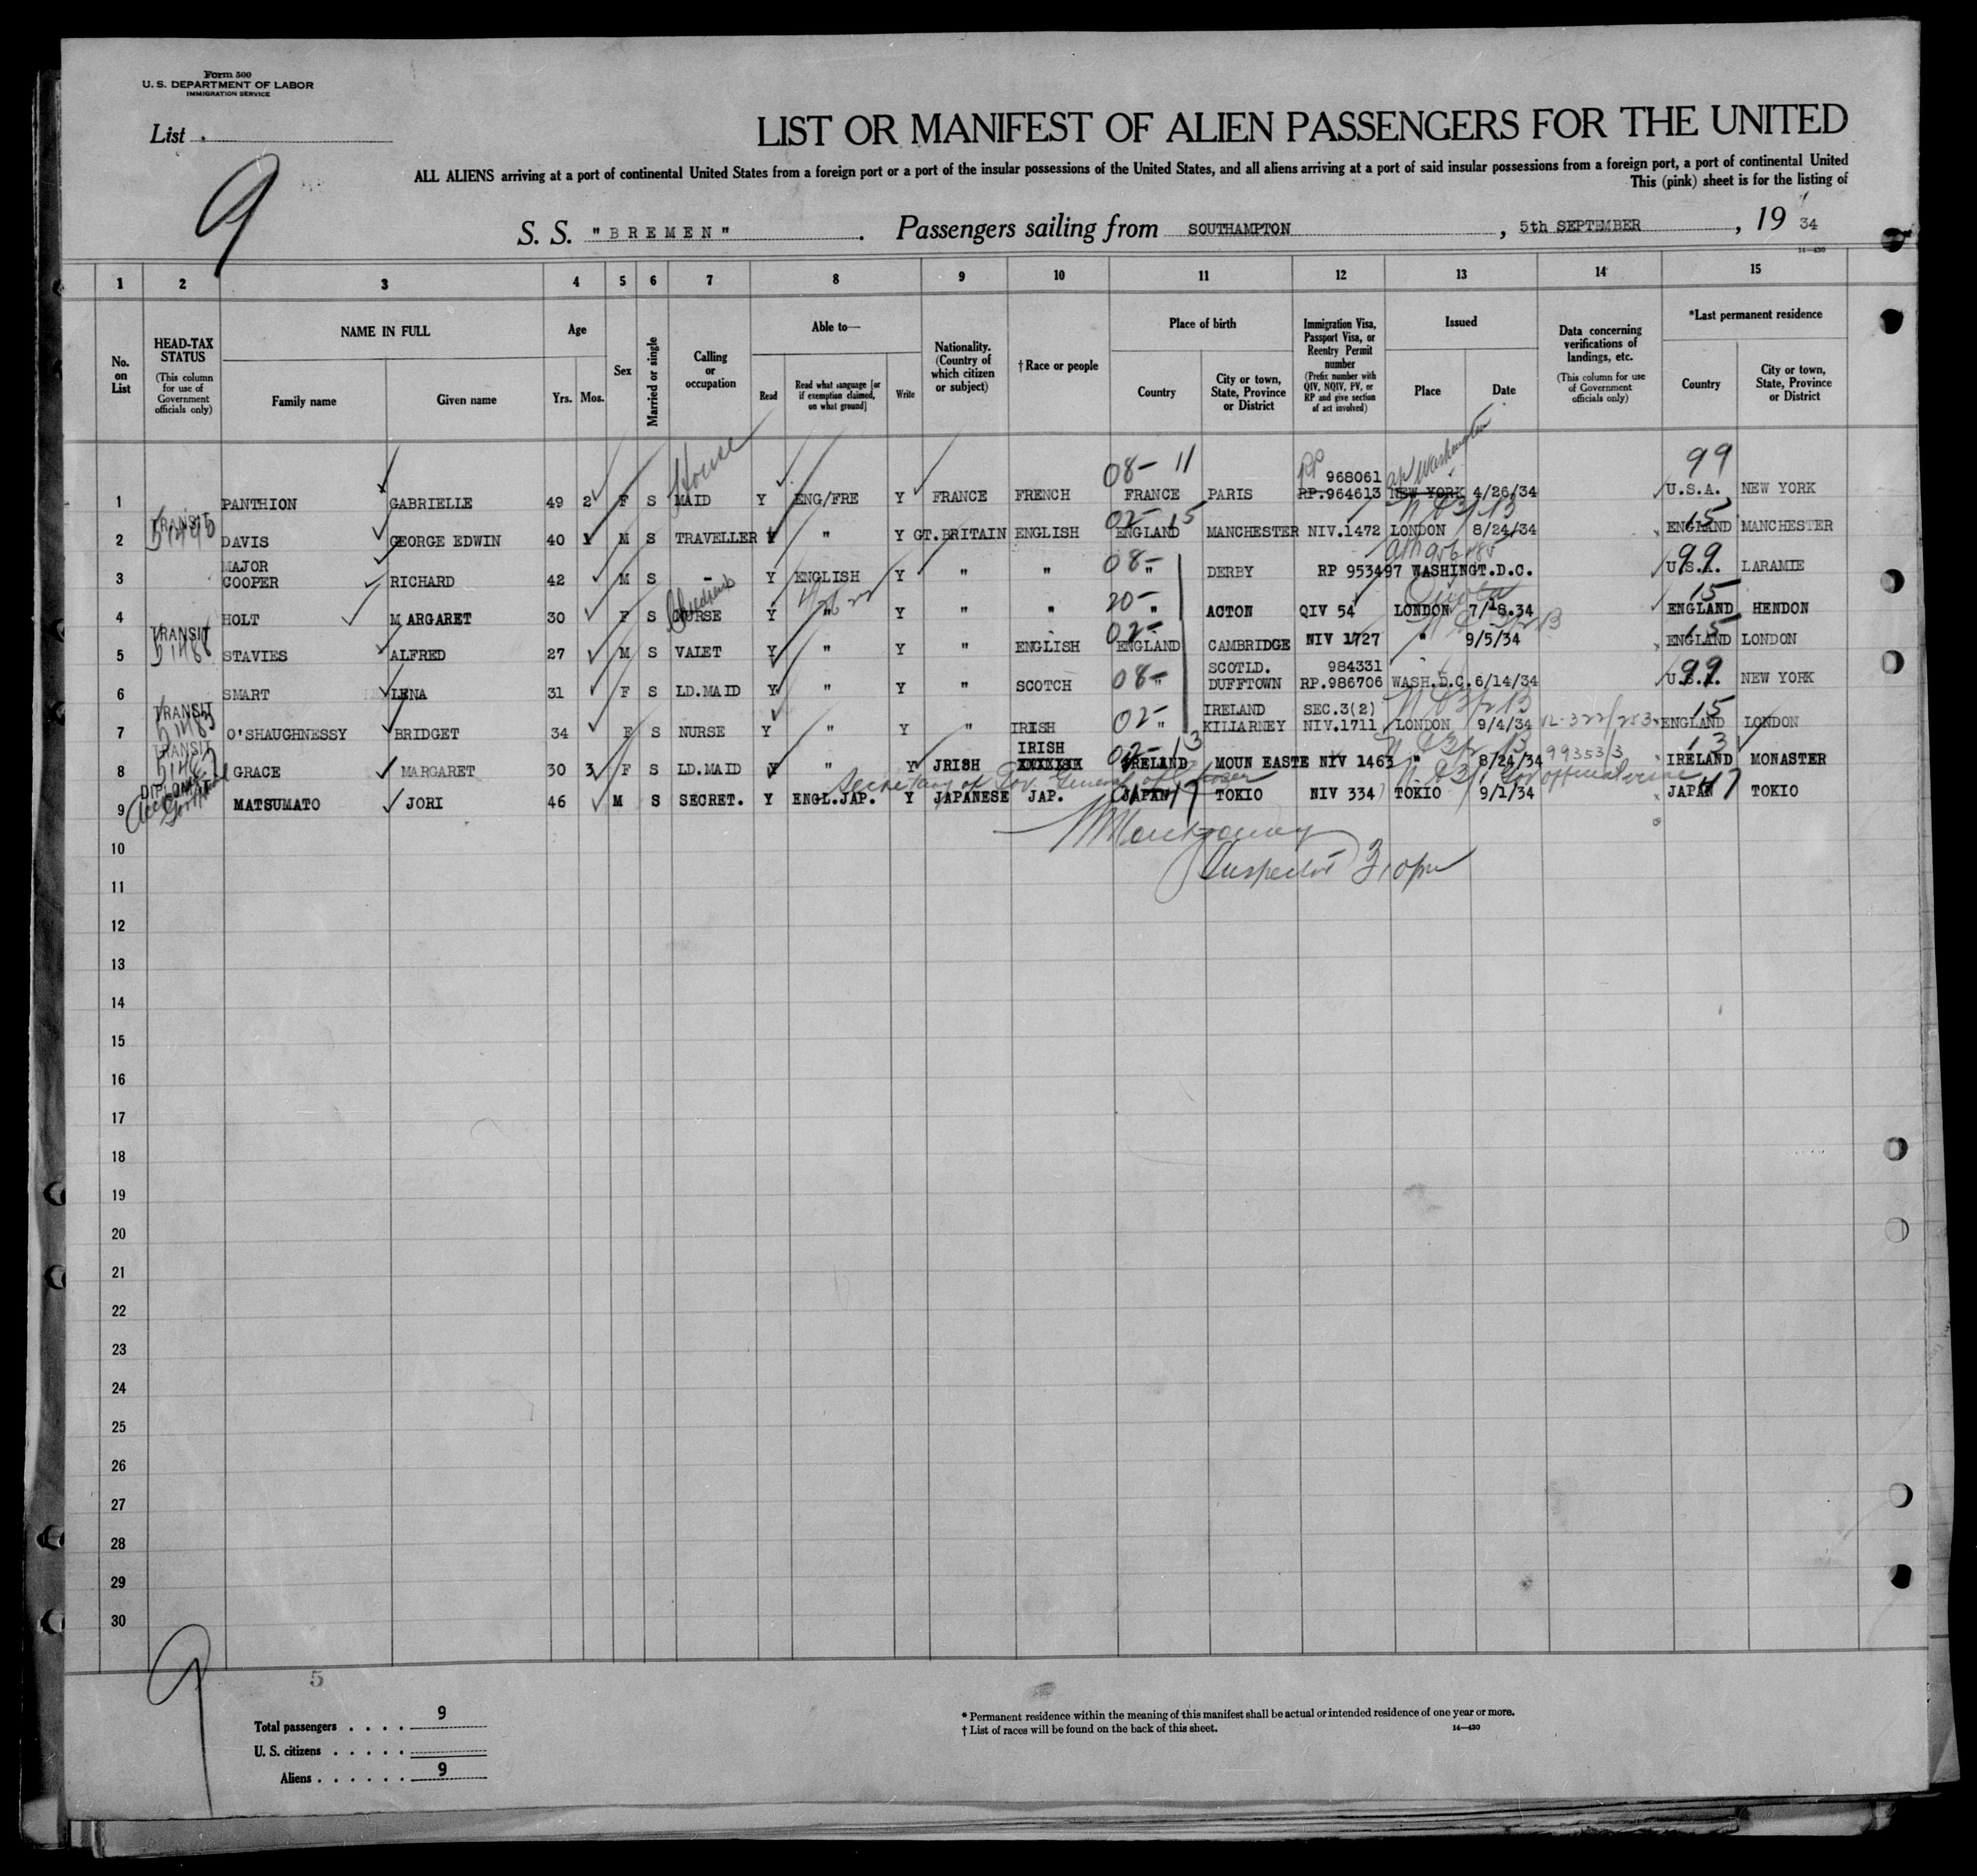 Form 500
U. S. DEPARTMENT OF LABOR
IMMIGRATION SERVICE
List
9
LIST OR MANIFEST OF ALIEN PASSENGERS FOR THE UNITED
ALL ALIENS arriving at a port of continental United States from a foreign port or a port of the insular possessions of the United States, and all aliens arriving at a port of said insular possessions from a foreign port, a port of continental United
This (pink) sheet is for the listing of
S. S. "BREMEN". Passengers sailing from SOUTHAMPTON, 5th SEPTEMBER, 19 34
14—430
1 2 3 4 5 6 7 8 9 10 11 12 13 14 15
No. on List
HEAD-TAX STATUS
(This column for use of Government officials only)
NAME IN FULL
Family name
Given name
Age
Yrs. Mos.
Sex
Married or single
Calling or occupation
Able to—
Read
Read what language [or if exemption claimed, on what ground]
Write
Nationality. (Country of which citizen or subject)
†Race or people
Place of birth
Country
City or town, State, Province or District
Immigration Visa, Passport Visa, or Reentry Permit number
(Prefix number with QIV, NQIV, PV, or RP and give section of act involved)
Issued
Place
Date
Data concerning verifications of landings, etc.
(This column for use of Government officials only)
*Last permanent residence
Country
City or town, State, Province or District
House 08- 11 RP 968061 Washington 99
1 PANTHION GABRIELLE 49 2 F S MAID Y ENG/FRE Y FRANCE FRENCH FRANCE PARIS RP.964613 NEW YORK 4/26/34 U.S.A. NEW YORK
TRANSIT 02- 15 15
2 DAVIS GEORGE EDWIN 40 1 M S TRAVELLER Y " Y GT.BRITAIN ENGLISH ENGLAND MANCHESTER NIV.1472 LONDON 8/24/34 ENGLAND MANCHESTER
MAJOR 08- 99
3 COOPER RICHARD 42 M S - Y ENGLISH Y " " " DERBY RP 953497 WASHINGT.D.C. U.S.A. LARAMIE
Children's 20- Quota 15
4 HOLT MARGARET 30 F S NURSE Y " Y " " " ACTON QIV 54 LONDON 7/18.34 ENGLAND HENDON
TRANSIT 02- 15
5 STAVIES ALFRED 27 M S VALET Y " Y " ENGLISH ENGLAND CAMBRIDGE NIV 1727 " 9/5/34 ENGLAND LONDON
08- SCOTLD. 984331 99
6 SMART LENA 31 F S LD.MAID Y " Y " SCOTCH " DUFFTOWN RP.986706 WASH.D.C. 6/14/34 U.S.A. NEW YORK
TRANSIT 02- IRELAND SEC.3(2) 15
7 O'SHAUGHNESSY BRIDGET 34 F S NURSE Y " Y " IRISH " KILLARNEY NIV.1711 LONDON 9/4/34 ENGLAND LONDON
TRANSIT IRISH 02- 13 99353/3 13
8 GRACE MARGARET 30 3 F S LD.MAID Y " Y JRISH IRELAND MOUN EASTE NIV 1463 " 8/24/34 IRELAND MONASTER
DIPLOMAT Secretary of Gov. General of 17 17
9 MATSUMATO JORI 46 M S SECRET. Y ENGL.JAP. Y JAPANESE JAP. JAPAN TOKIO NIV 334 TOKIO 9/1/34 JAPAN TOKIO
10
Inspector 310pm
11
12
13
14
15
16
17
18
19
20
21
22
23
24
25
26
27
28
29
30
9
5
Total passengers . . . . 9
U. S. citizens . . . . .
Aliens . . . . . . 9
* Permanent residence within the meaning of this manifest shall be actual or intended residence of one year or more.
† List of races will be found on the back of this sheet.
14—430